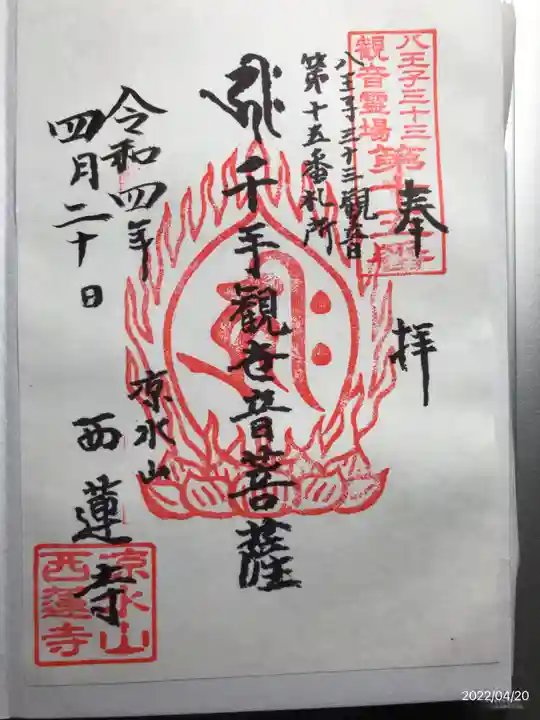 八王子三十三
観音霊場
第十五番
奉拝
八王子三十三観音
第十五番札所
千手観世音菩薩
凉水山
西蓮寺
令和四年
四月二十日
凉水山
西蓮寺
2022/04/20